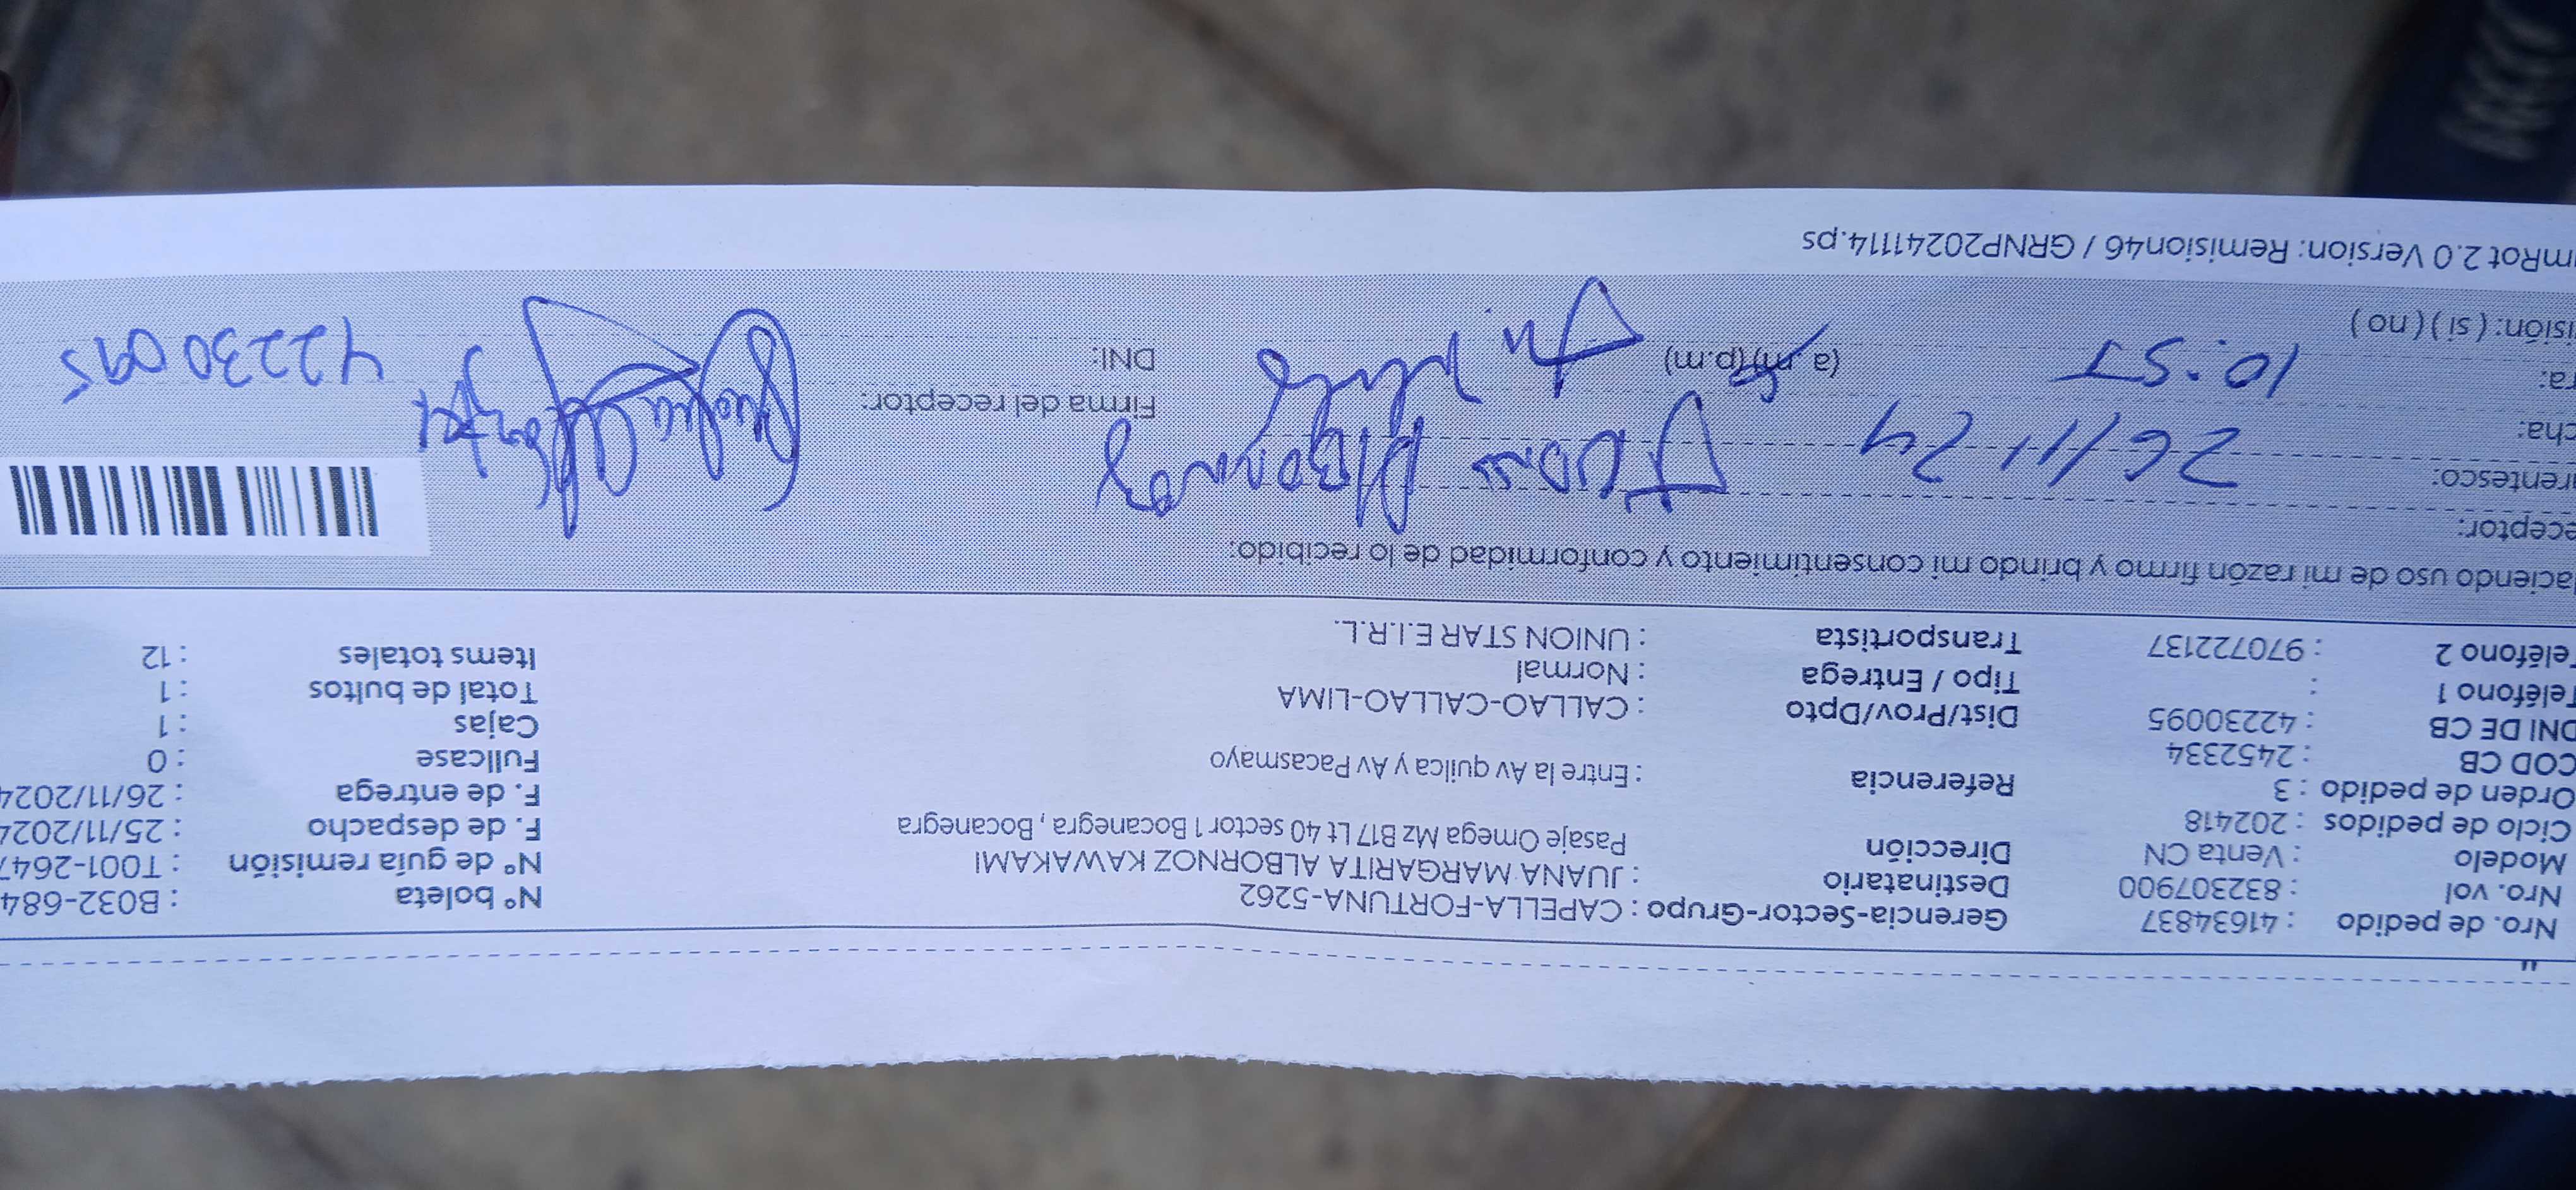 Nro. de pedido : 41634837 Gerencia-Sector-Grupo : CAPELLA-FORTUNA-5262 N° boleta : B032-684
Nro. vol : 832307900 Destinatario : JUANA MARGARITA ALBORNOZ KAWAKAMI N° de guía remisión : T001-2647
Modelo : Venta CN Dirección Pasaje Omega Mz B17 Lt 40 sector 1 Bocanegra , Bocanegra F. de despacho : 25/11/2024
Ciclo de pedidos : 202418 F. de entrega : 26/11/2024
Orden de pedido : 3 Referencia : Entre la Av quilca y Av Pacasmayo Fullcase : 0
COD CB : 2452334 Cajas : 1
DNI DE CB : 42230095 Dist/Prov/Dpto : CALLAO-CALLAO-LIMA Total de bultos : 1
Teléfono 1 : Tipo / Entrega : Normal Items totales : 12
Teléfono 2 : 970722137 Transportista : UNION STAR E.I.R.L.
aciendo uso de mi razón firmo y brindo mi consentimiento y conformidad de lo recibido:
eceptor:
rentesco: Albornoz
cha: 26/11/24 Firma del receptor:
ra: 10:57 (a.m)(p.m) DNI: 42230095
isión: ( si ) ( no )
mRot 2.0 Version: Remision46 / GRNP20241114.ps